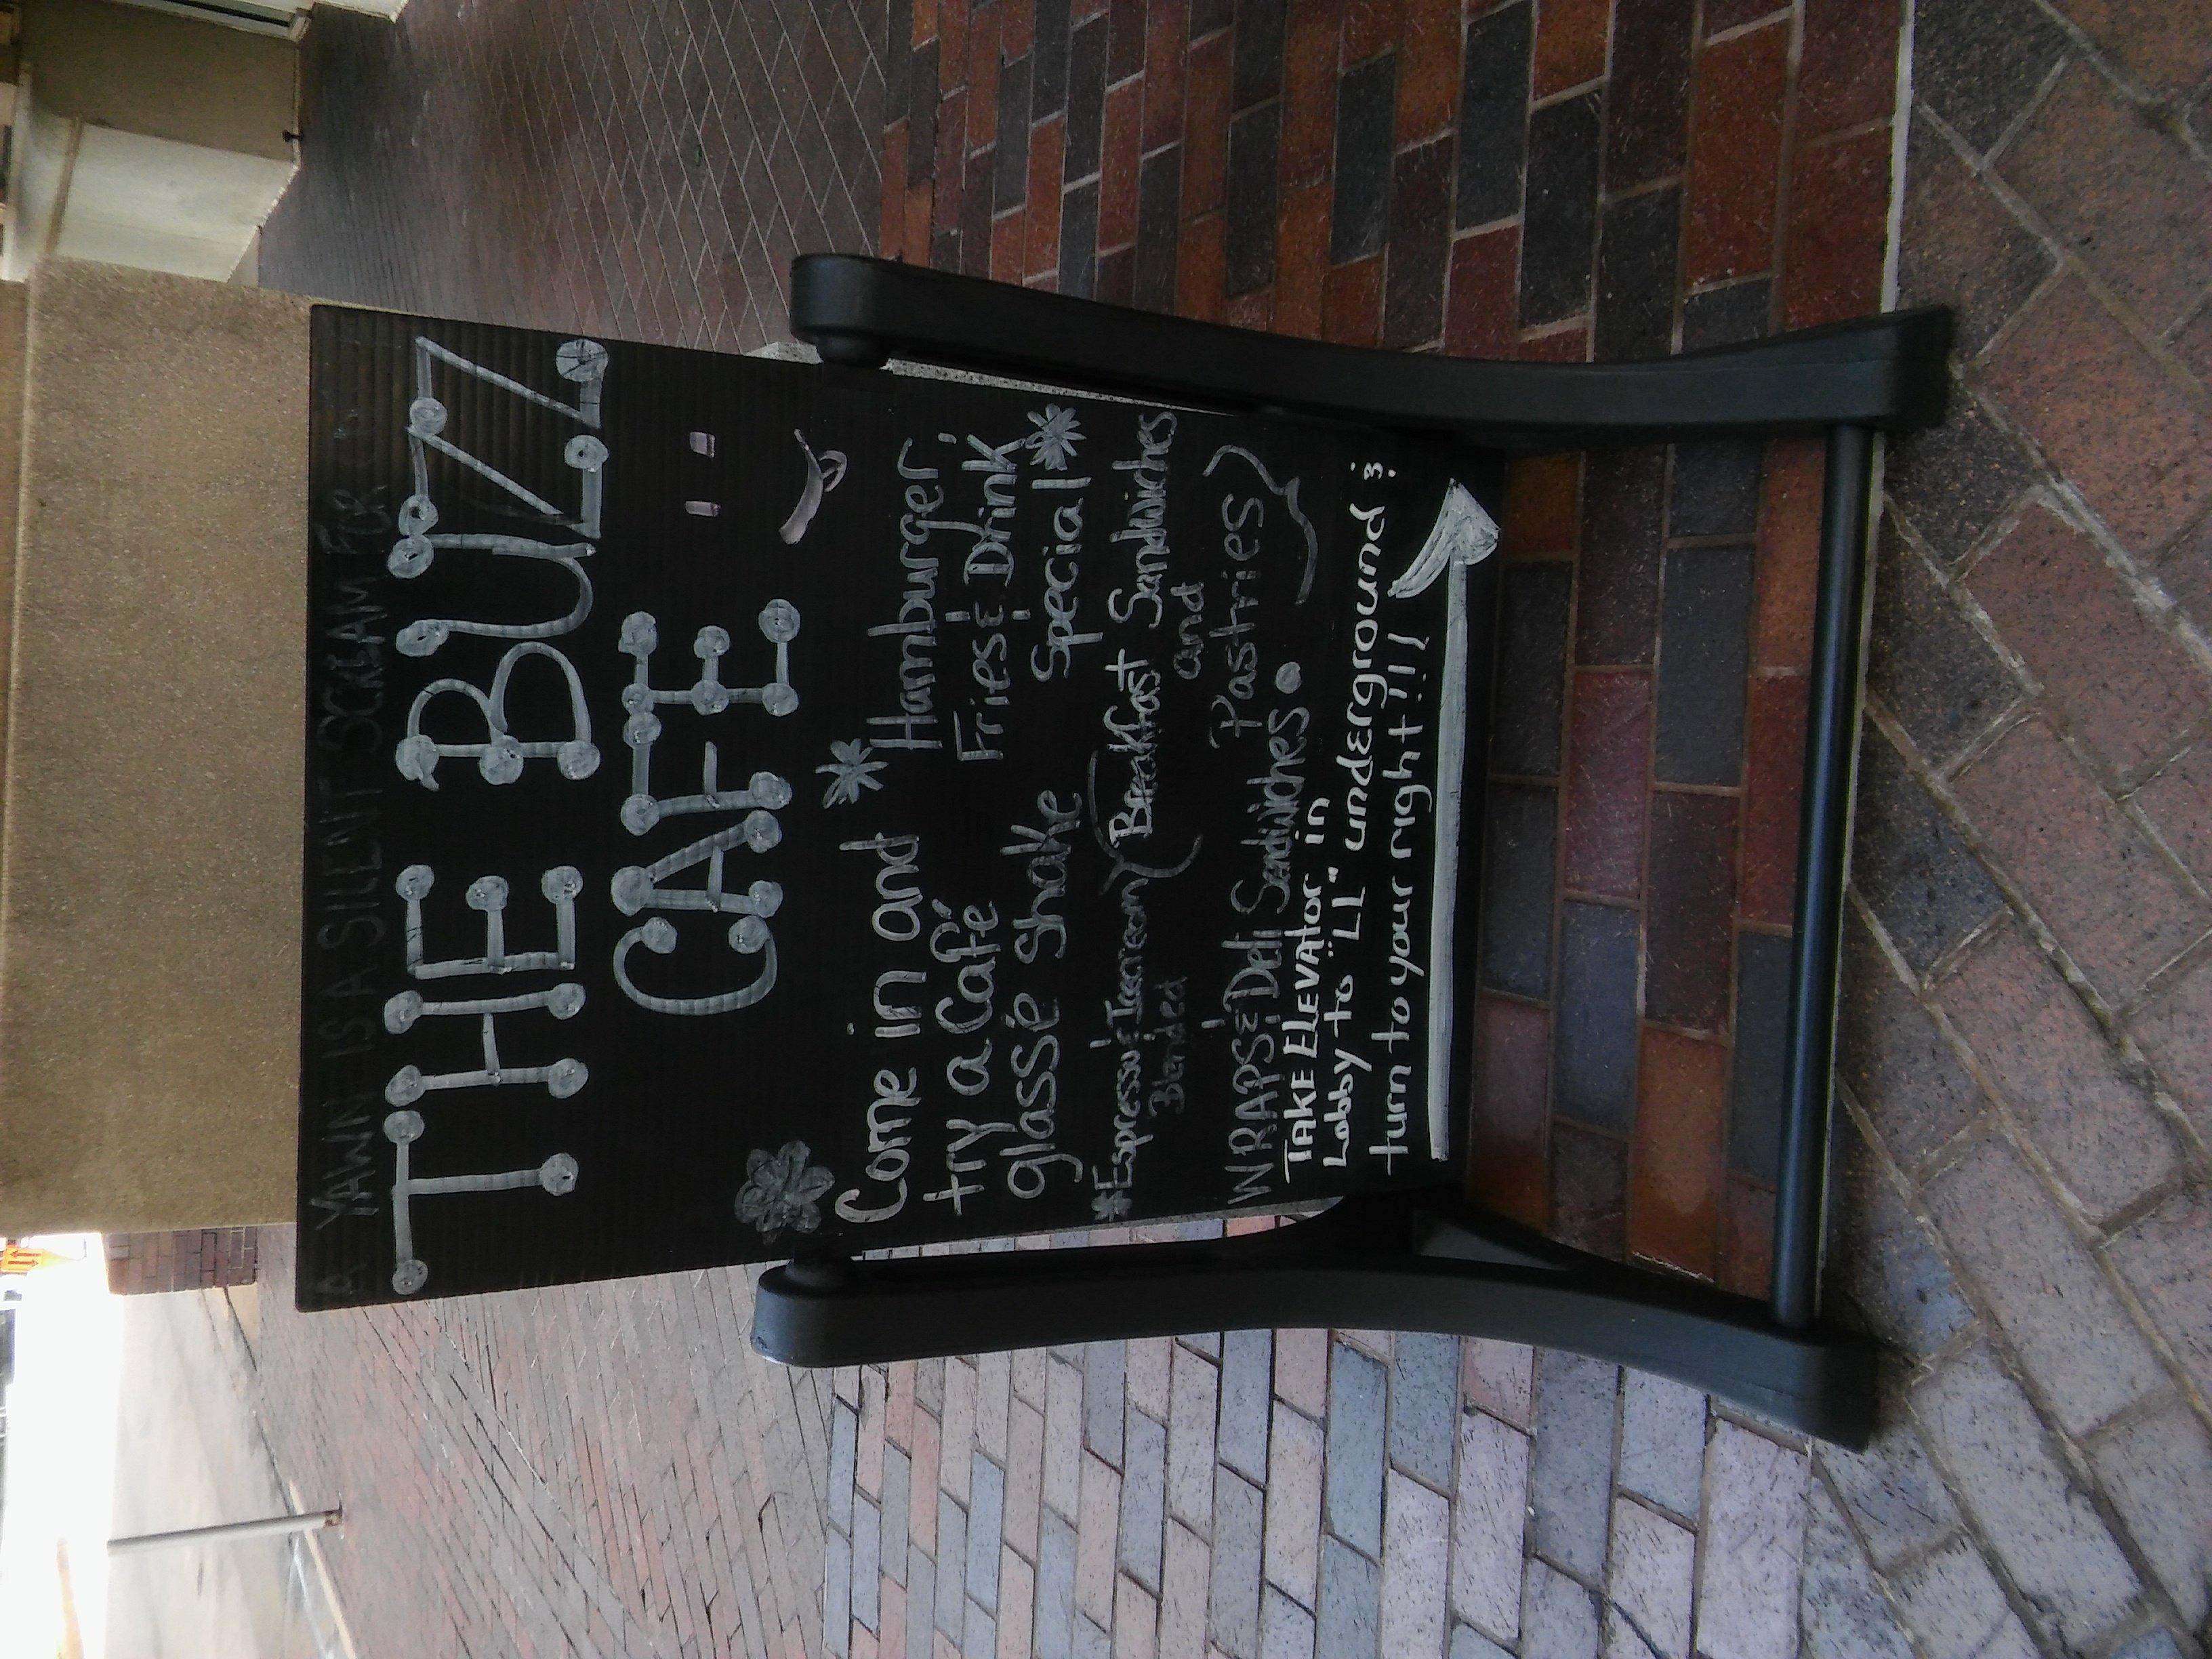 A YAWN IS A SILENT SCREAM FOR
THE BUZZ
CAFE
Come in and
try a Café
glassé shake
Hamburger,
Fries & Drink
Special
*Espresso & Icecream
Blended
Breakfast Sandwiches
and
Pastries
WRAPS & Deli Sandwiches
TAKE ELEVATOR in
Lobby to "LL" underground &
turn to your right!!!!